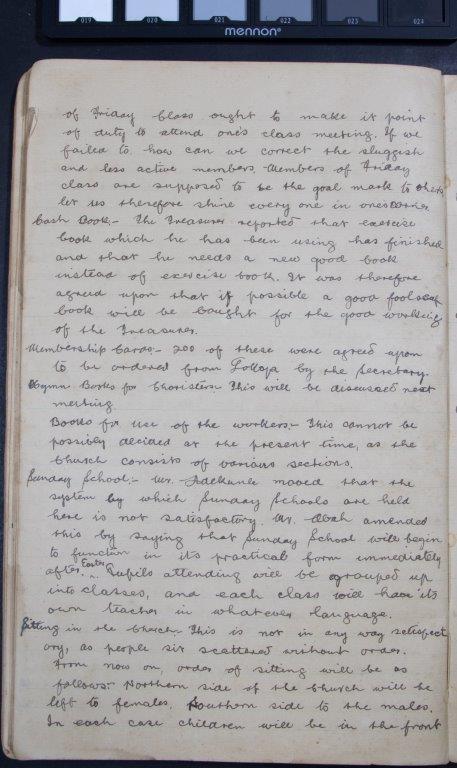 019 020 021 022 023 024
mennon®
of Friday Class ought to make it point
of duty to attend one's class meeting. If we
failed to how can we correct the sluggish
and less active members. Members of Friday
class are supposed to be the goal mark to others
let us therefore shine every one in one's corner.
Cash Book:- The Treasurer reported that exercise
book which he has been using has finished
and that he needs a new good book
instead of exercise book. It was therefore
agreed upon that if possible a good foolscap
book will be bought for the good working
of the Treasurer.
Membership Cards:- 200 of these were agreed upon
to be ordered from by the Secretary.
Hymn Books for Choristers: This will be discussed next
meeting
Books for use of the workers:- This cannot be
possibly decided at the present time, as the
Church consists of various sections.
Sunday School:- Mr. Adekunle moved that the
system by which Sunday Schools are held
here is not satisfactory. Mr. amended
this by saying that Sunday School will begin
to function in its practical form immediately
after Easter. Pupils attending will be grouped up
into classes, and each class will have its
own teacher in whatever language.
Sitting in the Church:- This is not in any way satisfact
ory, as people sit scattered without order.
From now on, order of sitting will be as
follows:- Northern side of the Church will be
left to females. Southern side to the males.
In each case children will be in the front